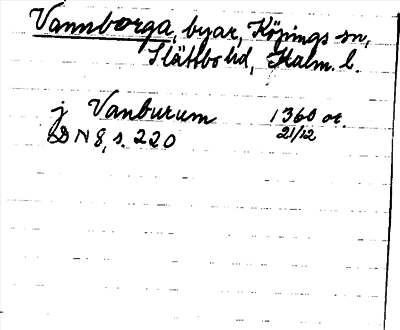 Vannborga, byar, Köpings sn,
Slättbo hd, Kalm. l.
j Vanburum 1360 or.
21/12
SD N 8, s. 220